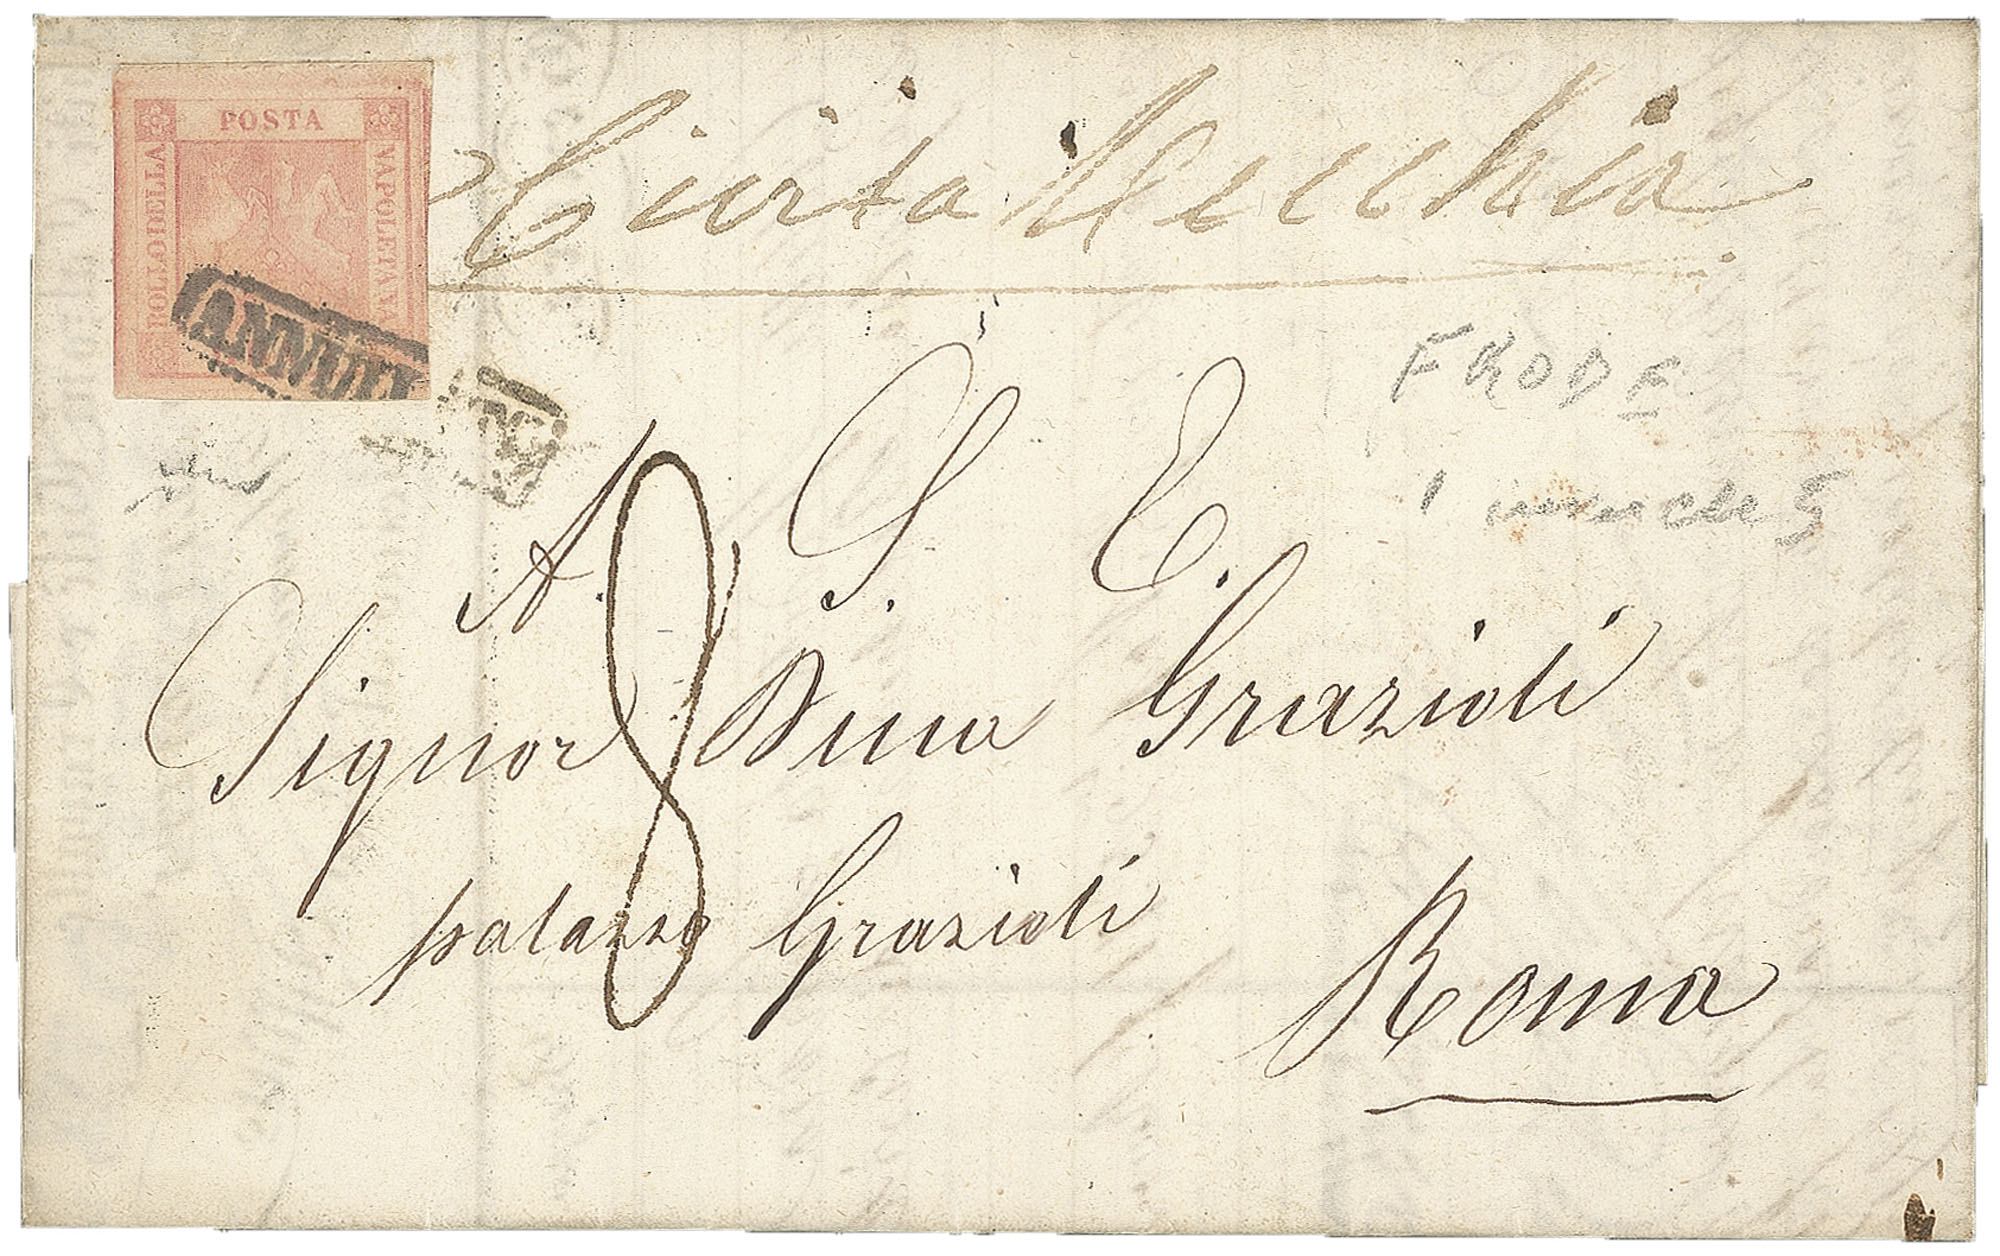 POSTA
BOLLO DELLA
NAPOLETANA
ANNULL
Civita Vecchia
FRODE
A. S. E.
8
Signor Duca Grazioli
palazzo Grazioli
Roma